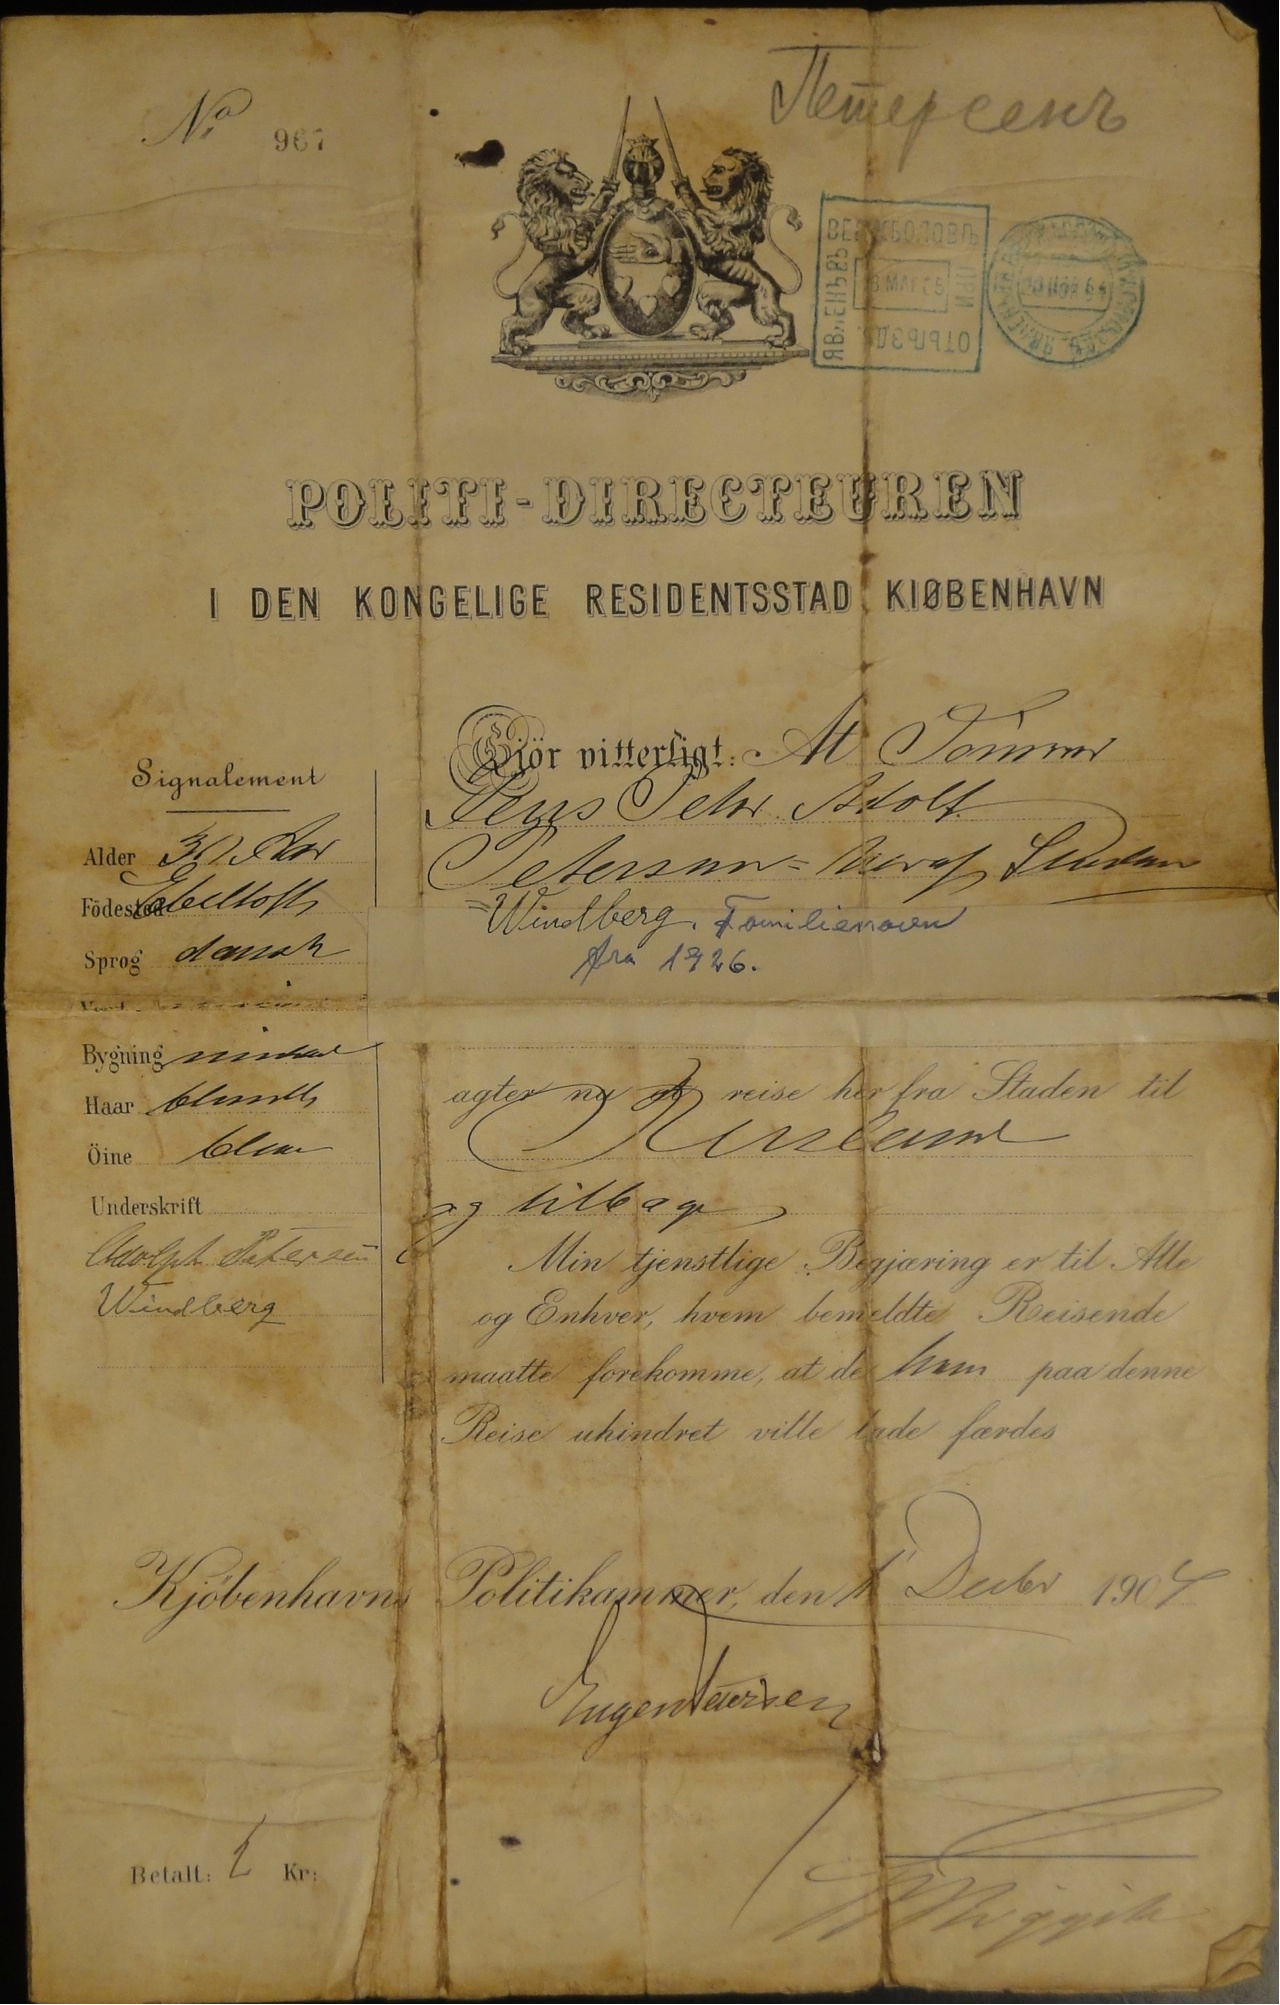 No 967
Петерсенъ
ВЕРЖБОЛОВѢ
ЯВЛЕНЪ ВЪ
ПРИ
ОТЪѢЗДѢ
POLITI-DIRECTEUREN
I DEN KONGELIGE RESIDENTSSTAD KIØBENHAVN
Gjör vitterligt: At Tömrer
Jens Peter Adolf
Petersen
=Windberg. Familienavn
fra 1926.
Signalement
Alder 30 Aar
Födested Ebeltoft
Sprog dansk
Bygning middel
Haar blondt
Öine blaa
Underskrift
Adolph Petersen
Windberg
agter nu at reise her fra Staden til
Rusland
og tilbage
Min tjenstlige Begjæring er til Alle
og Enhver, hvem bemeldte Reisende
maatte forekomme, at de ham paa denne
Reise uhindret ville lade færdes
Kjöbenhavns Politikammer, den 1 Decbr 1904
Eugen Petersen
Betalt: 2 Kr: